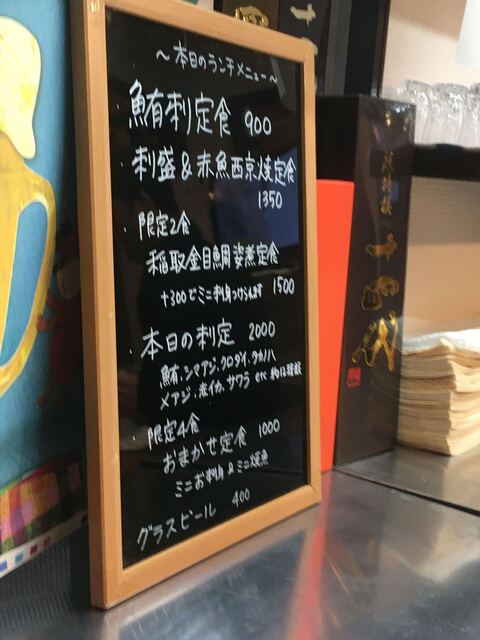 ～本日のランチメニュー～
鮪刺定食 900
刺盛&赤魚西京焼定食
1350
限定2食
稲取金目鯛姿煮定食
+300でミニ刺身つけられます 1500
本日の刺定 2000
鮪、シマアジ、クロダイ、タカノハ
メアジ、赤イカ、サワラ etc 約12種盛
限定4食
おまかせ定食 1000
ミニお刺身&ミニ焼魚
グラスビール 400